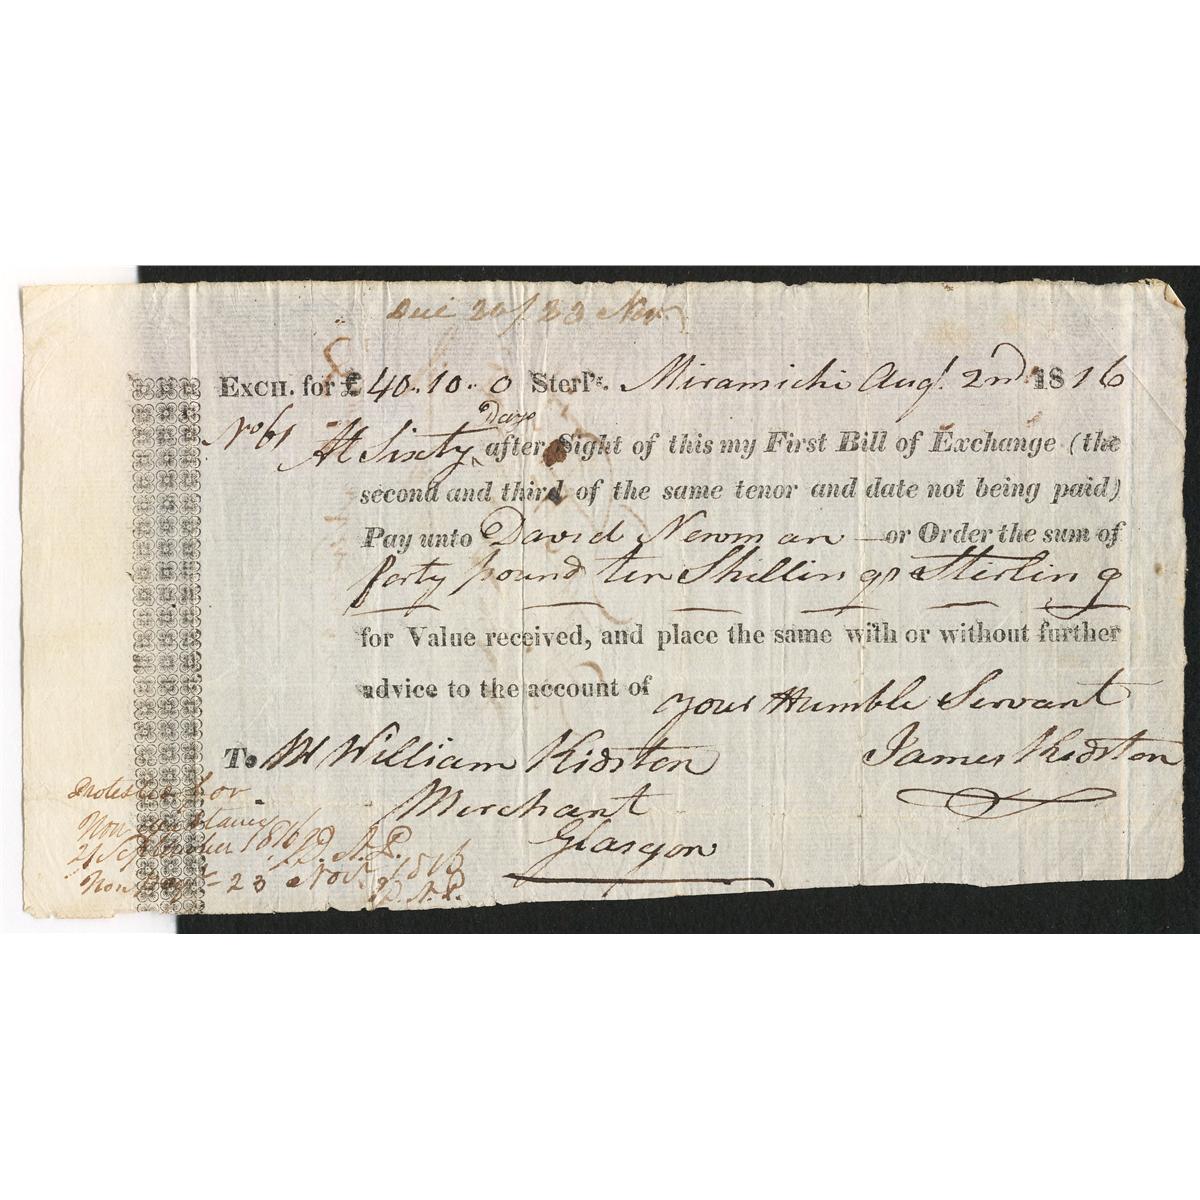 Due 20/23 Nov
Exch. for £ 40..10..0 Sterl'g. Miramichi Augt. 2nd 1816
No 61 At Sixty Days after Sight of this my First Bill of Exchange (the
second and third of the same tenor and date not being paid)
Pay unto David Newman — or Order the sum of
forty pound ten Shillings Sterling
for Value received, and place the same with or without further
advice to the account of
your Humble Servant
To Mr William Kidston James Kidston
Merchant
Glasgow
Protested for
Non acceptance
21 September 1816
Non Paymt 23 Novr 1816